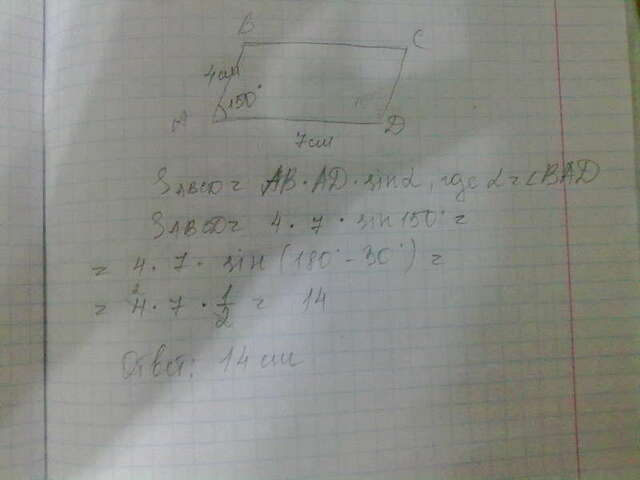 B
C
4см
150°
A
D
7см
SABCD = AB · AD · sin α, где α = ∠BAD
SABCD = 4 · 7 · sin 150° =
= 4 · 7 · sin (180° - 30°) =
= 4 · 7 · 1/2 = 14
2
Ответ: 14 см